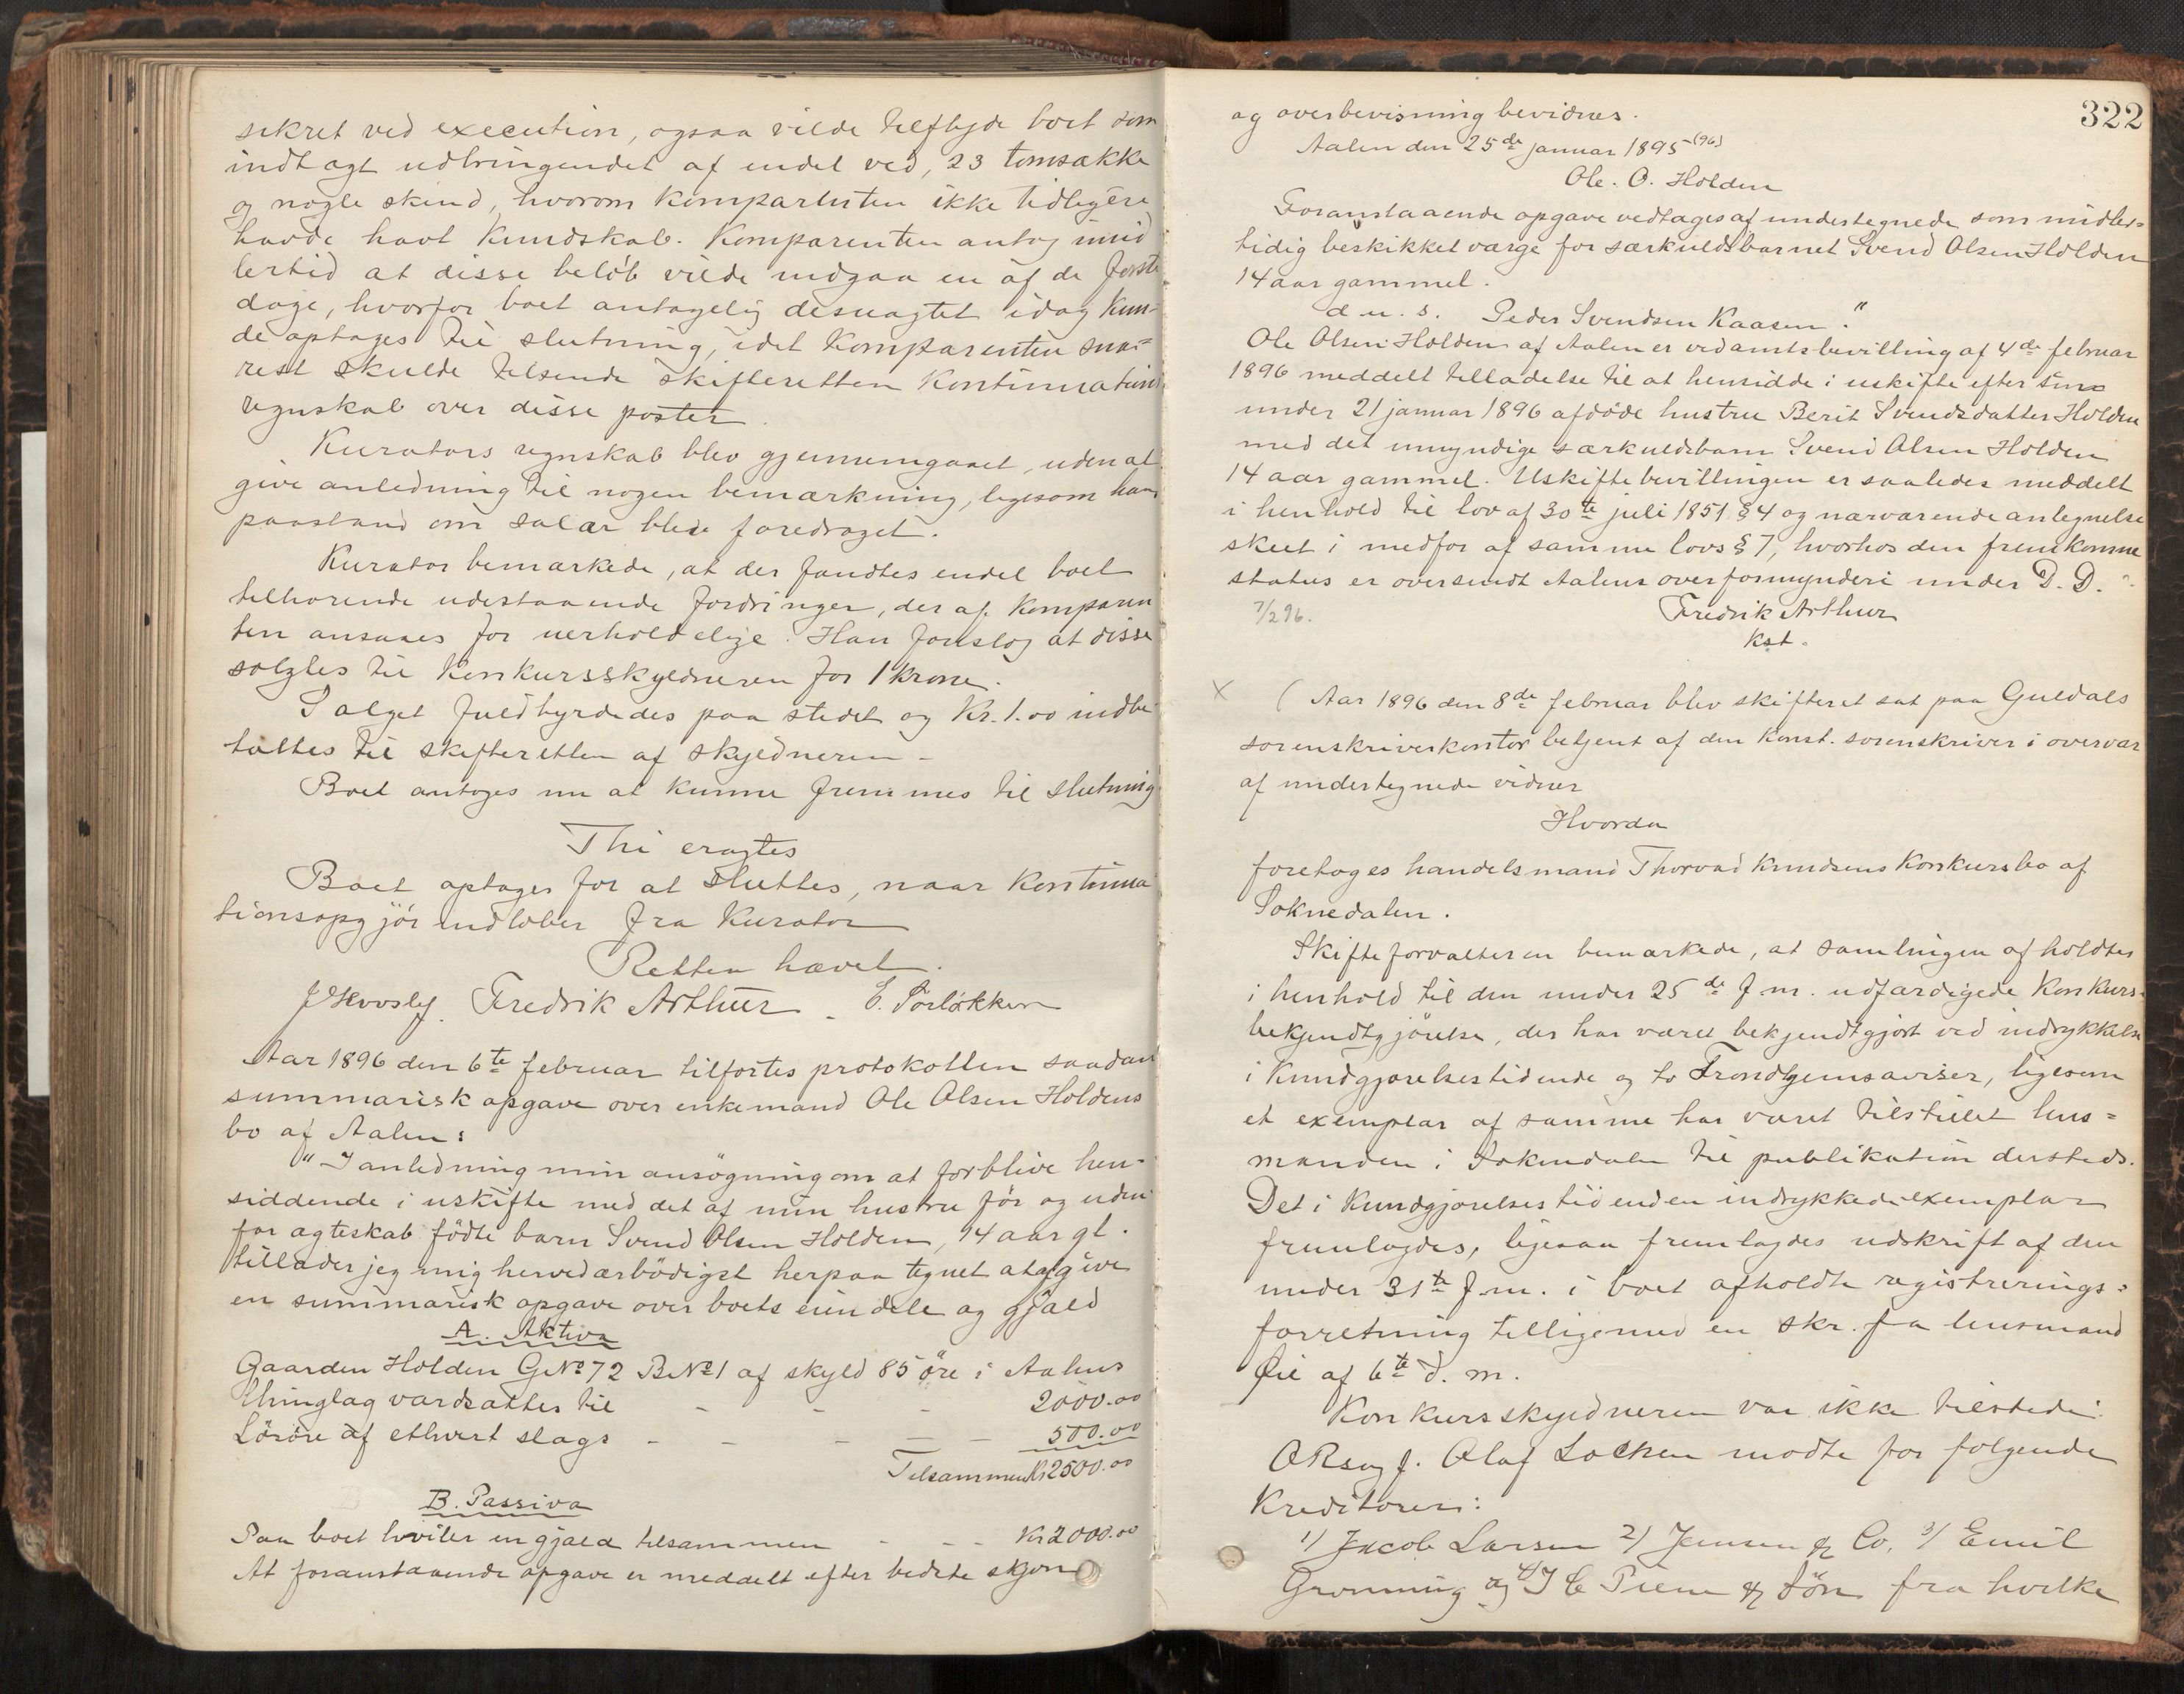 sikret ved execution, ogsaa vilde tilflyde boet som
indtægt udbringendet af endel ved, 23 tomsække
og nogle skind, hvorom komparenten ikke tidligere
havde havt kundskab. Komparenten antog imid
lertid at disse beløb vilde indgaa en af de første
dage, hvorfor boet antagelig desuagtet idag kun-
de optages til slutning, idet komparenten sna-
rest skulde tilsende skifteretten kontinuations
regnskab over disse poster.
Kurators regnskab blev gjennemgaaet, uden at
give anledning til nogen bemærkning, ligesom hans
paastand om salær blev foredraget.
Kurator bemærkede, at der fandtes endel boet
tilhørende udestaaende fordringer, der af komparen
ten ansaaes for uerholdelige. Han foreslog at disse
solgtes til konkursskyldneren for 1 krone.
Salget fuldbyrdedes paa stedet og Kr. 1.00 indbe
taltes til skifteretten af skyldneren -
Boet antoges nu at kunne fremmes til slutning
Thi eragtes
Boet optages for at sluttes, naar kontinua
tionsopgjør indløber fra kurator
Retten hævet.
Fredrik Arthur - E. Porløkken
Aar 1896 den 6te februar tilførtes protokollen saadan
summarisk opgave over enkemand Ole Olsen Holdens
bo af Aalen:
"I anledning min ansøgning om at forblive hen-
siddende i uskifte med det af min hustru før og uden
for ægteskab fødte barn Svend Olsen Holden, 14 aar gl.
tillader jeg mig herved ærbødigst herpaa tegnet at afgive
en summarisk opgave over boets eiendele og gjæld
A. Aktiva
Gaarden Holden G.No 72 B.No 1 af skyld 85 øre i Aalens
thinglag værdsattes til - - - 2000.00
Løsøre af ethvert slags - - - - - 500.00
Tilsammen Kr 2500.00
B. Passiva
Paa boet hviler en gjæld tilsammen - - - Kr 2000.00
At foranstaaende opgave er meddelt efter bedste skjøn
322
og overbevisning bevidnes.
Aalen den 25de januar 1895 (96)
Ole. O. Holden
Foranstaaende opgave vedtages af undertegnede som midler=
tidig beskikket værge for særkuldsbarnet Svend Olsen Holden
14 aar gammel.
d. u. s. Peder Svendsen Kaasen."
Ole Olsen Holden af Aalen er ved amtsbevilling af 4de februar
1896 meddelt tilladelse til at hensidde i uskifte efter sin
under 21 januar 1896 afdøde hustru Berit Svendsdatter Holden
med det umyndige særkuldsbarn Svend Olsen Holden
14 aar gammel. Uskiftebevillingen er saaledes meddelt
i henhold til lov af 30te juli 1851 § 4 og nærværende antegnelse
skeet i medfør af samme lovs § 7, hvorhos den fremkomne
status er oversendt Aalens overformynderi under D. D.
7/2 96. Fredrik Arthur
kst.
x ( Aar 1896 den 8de februar blev skifteret sat paa Guldals
sorenskriverkontor betjent af den konst. sorenskriver i overvær
af undertegnede vidner
Hvorda
foretoges handelsmand Thorvad Knudsens konkursbo af
Soknedalen.
Skifteforvalteren bemærkede, at samlingen afholdtes
i henhold til den under 25de f. m. udfærdigede konkurs-
bekjendtgjørelse, der har været bekjendtgjort ved indrykkelse
i Kundgjørelsestidende og to Trondhjemsaviser, ligesom
et exemplar af samme har været tilstillet lens=
manden i Soknedalen til publikation dersteds.
Det i Kundgjørelsestidenden indrykkede exemplar
fremlagdes, ligesaa fremlagdes udskrift af den
under 31te f. m. i boet afholdte registrerings=
forretning tilligemed en skr. fra lensmand
af 6te d. m.
Konkursskyldneren var ikke tilstede.
ORsagf. Olaf Løchen mødte for følgende
kreditorer:
1) Jacob Larsen 2) Jensen & Co. 3) Emil
Grønning og 4) I C Piene & Søn fra hvilke